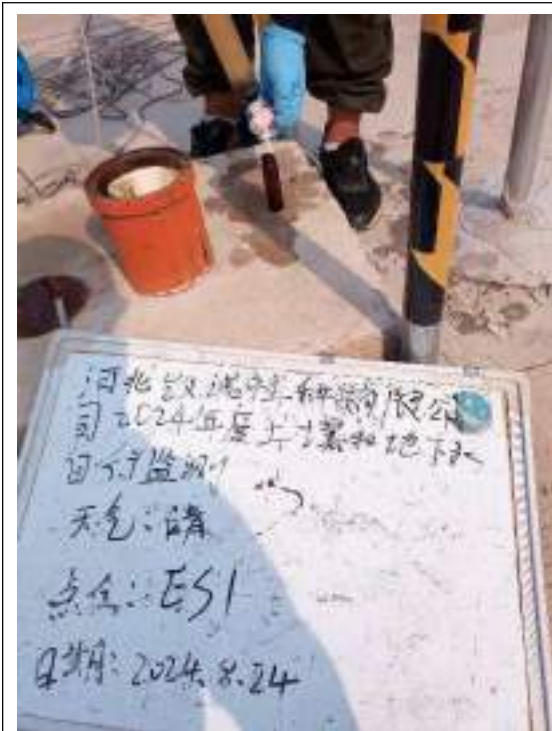 河北 科 有限公
司2024年度土壤和地下水
自行监测
天气：晴
点位：ES1
日期：2024.8.24